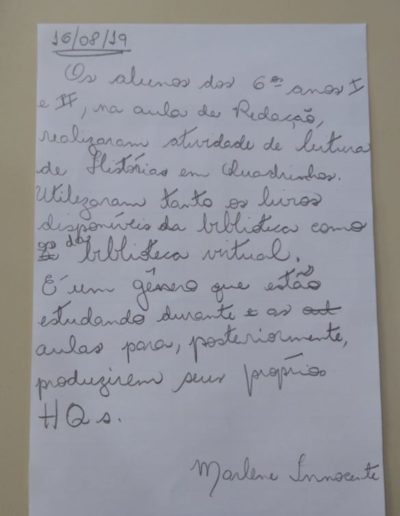 16/08/19
Os alunos dos 6os anos I
e II, na aula de Redação,
realizaram atividade de leitura
de Histórias em Quadrinhos.
Utilizaram tanto os livros
disponíveis da biblioteca como
da biblioteca virtual.
É um gênero que estão
estudando durante as
aulas para, posteriormente,
produzirem seus próprios
HQs.
Marlene Innocente